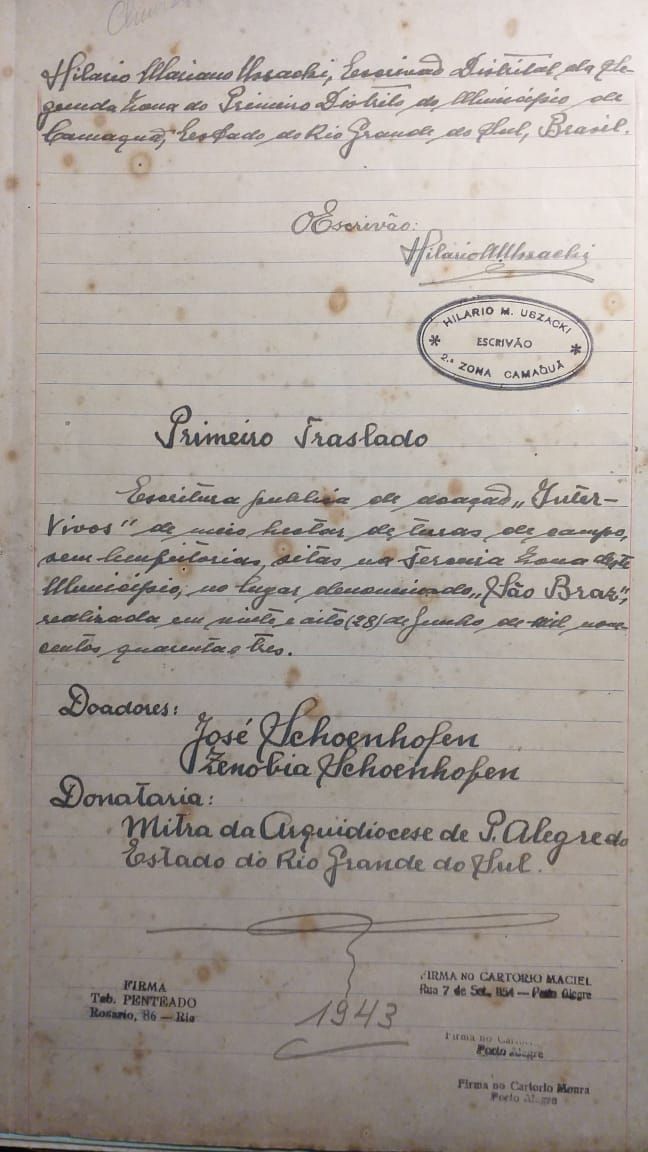 Hilario Mariano Uszacki, Escrivão Distrital da Se-
gunda Zona do Primeiro Distrito do Município de
Camaquã, Estado do Rio Grande do Sul, Brasil.
O Escrivão:
Hilario M Uszacki
HILARIO M. USZACKI
ESCRIVÃO
2.ª ZONA CAMAQUÃ
Primeiro Traslado
Escritura publica de doação „Inter-
Vivos" de meio hectar de terras de campo,
sem bemfeitorias, sitas na Terceira Zona deste
Município, no lugar denominado „São Braz",
realizada em vinte e oito (28) de Junho de mil nove
centos quarenta e tres.
Doadores:
José Schoenhofen
Zenobia Schoenhofen
Donataria:
Mitra da Arquidiocese de P. Alegre do
Estado do Rio Grande do Sul.
1943
FIRMA
Tab. PENTEADO
Rosario, 86 — Rio
FIRMA NO CARTORIO MACIEL
Rua 7 de Set., 854 — Porto Alegre
Firma no
Porto Alegre
Firma no Cartorio Moura
Porto Alegre